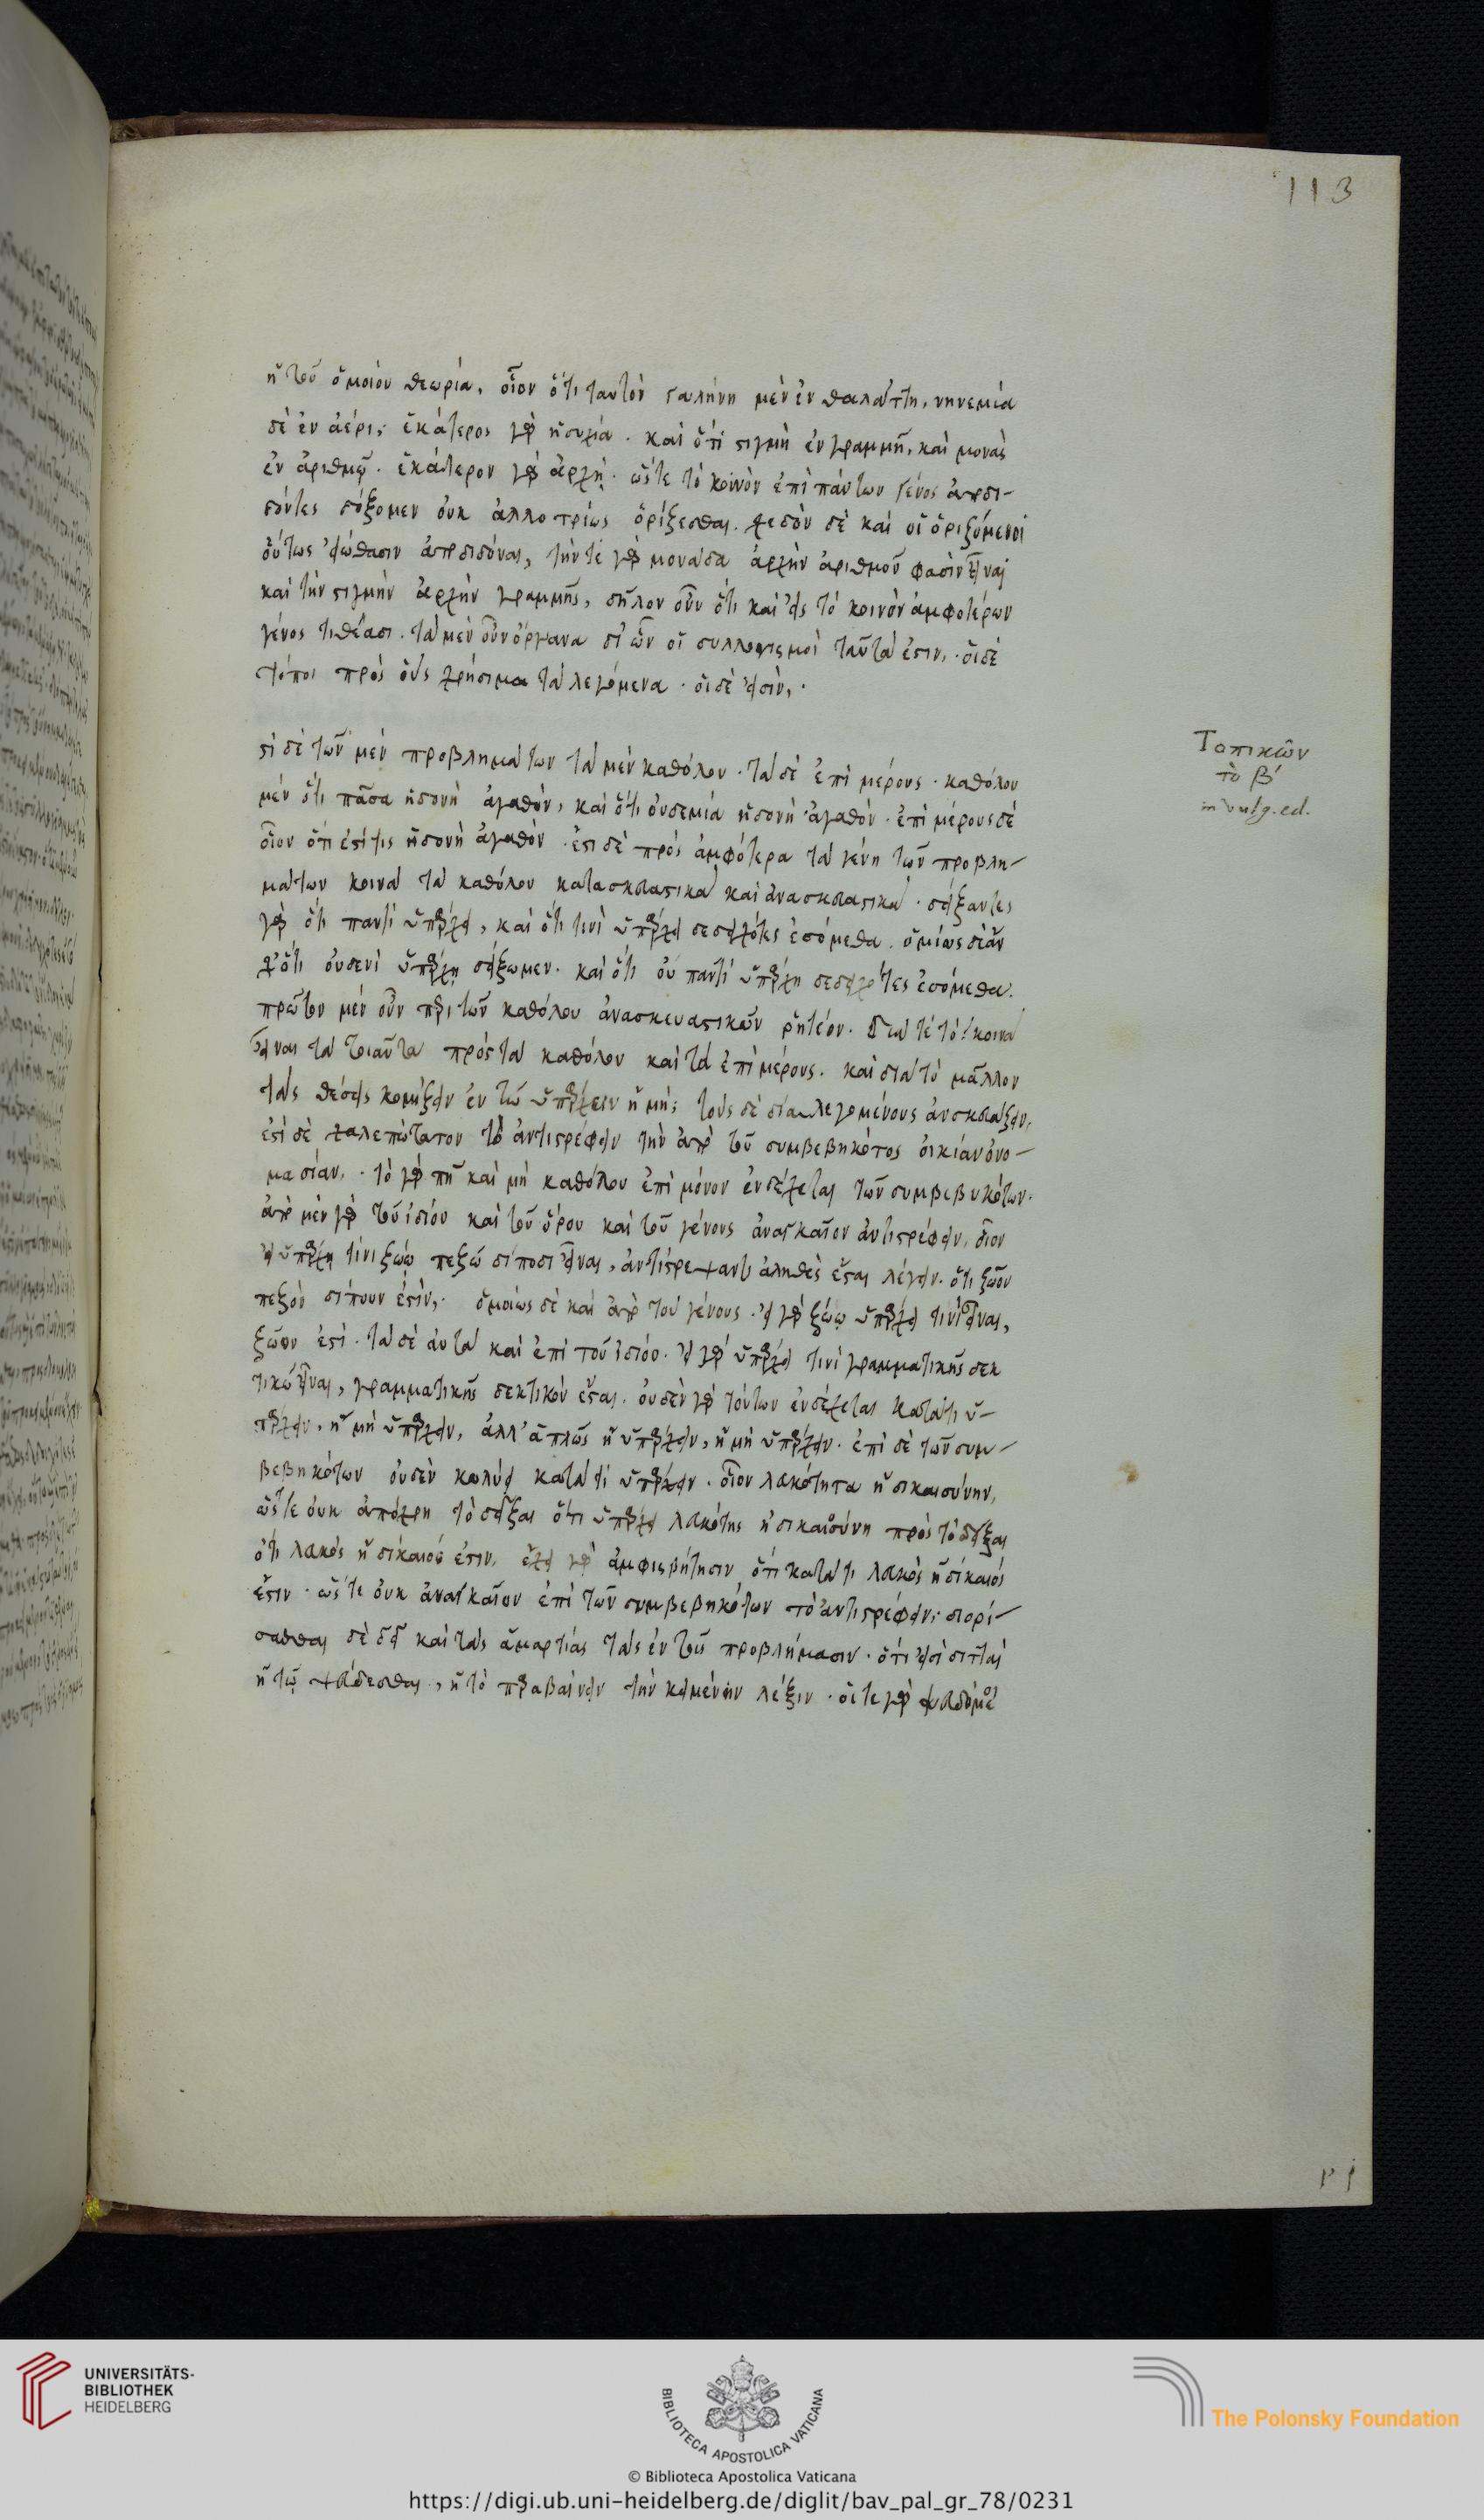 113
ἡ τοῦ ὁμοίου θεωρία. οἷον ὅτι ταυτὸν γαλήνη μὲν ἐν θαλάττη, νηνεμία
δὲ ἐν ἀέρι· ἑκάτερος γὰρ ἡσυχία. καὶ ὅτι στιγμὴ ἐν γραμμῆ, καὶ μονὰς
ἐν ἀριθμῷ. ἑκάτερον γὰρ ἀρχή. ὥστε τὸ κοινὸν ἐπὶ πάντων γένος ἀποδι-
δόντες δόξομεν οὐκ ἀλλοτρίως ὁρίζεσθαι. σχεδὸν δὲ καὶ οἱ ὁριζόμενοι
οὕτως εἰώθασιν ἀποδιδόναι, τήν τε γὰρ μονάδα ἀρχὴν ἀριθμοῦ φασὶν εἶναι
καὶ τὴν στιγμὴν ἀρχὴν γραμμῆς, δῆλον οὖν ὅτι καὶ εἰς τὸ κοινὸν ἀμφοτέρων
γένος τιθέασι. τὰ μὲν οὖν ὄργανα δι' ὧν οἱ συλλογισμοὶ ταῦτά ἐστιν. οἱ δὲ
τόποι πρὸς οὓς χρήσιμα τὰ λεγόμενα. οἵδε εἰσίν.
στι δὲ τῶν μὲν προβλημάτων τὰ μὲν καθόλου. τὰ δὲ ἐπὶ μέρους. καθόλου
Τοπικῶν
τὸ β'
in vulg. ed.
μὲν ὅτι πᾶσα ἡδονὴ ἀγαθόν, καὶ ὅτι οὐδεμία ἡδονὴ ἀγαθόν. ἐπὶ μέρους δὲ
οἷον ὅτι ἐστί τις ἡδονὴ ἀγαθόν. ἔστι δὲ πρὸς ἀμφότερα τὰ γένη τῶν προβλη-
μάτων κοινὰ τὰ καθόλου κατασκευαστικὰ καὶ ἀνασκευαστικά. δείξαντες
γὰρ ὅτι παντὶ ὑπάρχει, καὶ ὅτι τινὶ ὑπάρχει δεδειχότες ἐσόμεθα. ὁμοίως δὲ ἂν
ὅτι οὐδενὶ ὑπάρχη δείξωμεν. καὶ ὅτι οὐ παντὶ ὑπάρχη δεδειχότες ἐσόμεθα.
πρῶτον μὲν οὖν περὶ τῶν καθόλου ἀνασκευαστικῶν ῥητέον. διά τε τὸ κοινὰ
εἶναι τὰ τοιαῦτα πρὸς τὰ καθόλου καὶ τὰ ἐπὶ μέρους. καὶ διὰ τὸ μᾶλλον
τὰς θέσεις κομίζειν ἐν τῶ ὑπάρχειν ἢ μή· τοὺς δὲ διαλεγομένους ἀνασκευάζειν.
ἐστὶ δὲ χαλεπώτατον τὸ ἀντιστρέφειν τὴν ἀπὸ τοῦ συμβεβηκότος οἰκίαν ὀνο-
μασίαν. τὸ γὰρ πῆ καὶ μὴ καθόλου ἐπὶ μόνον ἐνδέχεται τῶν συμβεβηκότων.
ἀπὸ μὲν γὰρ τοῦ ἰδίου καὶ τοῦ ὅρου καὶ τοῦ γένους ἀναγκαῖον ἀντιστρέφειν, οἷον
εἰ ὑπάρχη τινὶ ζώῳ πεζῷ δίποδι εἶναι, ἀντιστρέψαντι ἀληθὲς ἔσται λέγειν. ὅτι ζῶον
πεζὸν δίπουν ἐστίν. ὁμοίως δὲ καὶ ἀπὸ τοῦ γένους. εἰ γὰρ ζώῳ ὑπάρχει τινὶ εἶναι,
ζῶον ἐστὶ. τὰ δὲ αὐτὰ καὶ ἐπὶ τοῦ ἰδίου. εἰ γὰρ ὑπάρχει τινὶ γραμματικῆς δεκ
τικῷ εἶναι, γραμματικῆς δεκτικὸν ἔσται. οὐδὲν γὰρ τούτων ἐνδέχεται κατά τι ὑ-
πάρχειν, ἢ μὴ ὑπάρχειν, ἀλλ' ἁπλῶς ἢ ὑπάρχειν, ἢ μὴ ὑπάρχειν. ἐπὶ δὲ τῶν συμ-
βεβηκότων οὐδὲν κωλύει κατά τι ὑπάρχειν. οἷον λευκότητα ἢ δικαιοσύνην,
ὥστε οὐκ ἀπόχρη τὸ δεῖξαι ὅτι ὑπάρχει λευκότης ἢ δικαιοσύνη πρὸς τὸ δεῖξαι
ὅτι λευκὸς ἢ δίκαιός ἐστιν. ἔχει γὰρ ἀμφισβήτησιν ὅτι κατά τι λευκὸς ἢ δίκαιός
ἐστιν. ὥστε οὐκ ἀναγκαῖον ἐπὶ τῶν συμβεβηκότων τὸ ἀντιστρέφειν· διορί-
σασθαι δὲ δεῖ καὶ τὰς ἁμαρτίας τὰς ἐν τοῖς προβλήμασιν. ὅτι εἰσὶ διτταὶ
ἢ τῷ ψεύδεσθαι, ἢ τὸ παραβαίνειν τὴν κειμένην λέξιν. οἵ τε γὰρ ψευδόμε
UNIVERSITÄTS-
BIBLIOTHEK
HEIDELBERG
BIBLIOTECA APOSTOLICA VATICANA
The Polonsky Foundation
© Biblioteca Apostolica Vaticana
https://digi.ub.uni-heidelberg.de/diglit/bav_pal_gr_78/0231